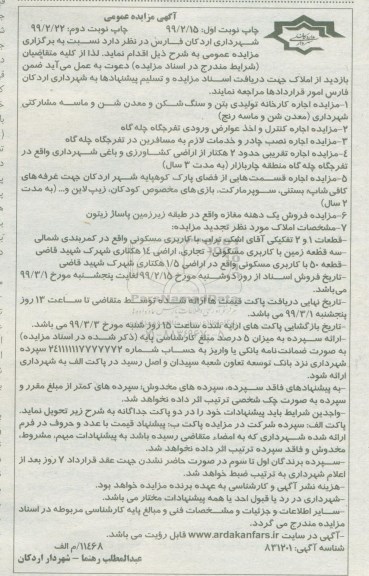 آگهی مزایده عمومی
چاپ نوبت اول: ۹۹/۲/۱۵ چاپ نوبت دوم: ۹۹/۲/۲۲
شهرداری اردکان فارس در نظر دارد نسبت به برگزاری
مزایده عمومی به شرح ذیل اقدام نماید. لذا از کلیه متقاضیان
(شرایط مندرج در اسناد مزایده) دعوت به عمل می‌آید ضمن
بازدید از املاک جهت دریافت اسناد مزایده و تسلیم پیشنهادها به شهرداری اردکان
فارس امور قراردادها مراجعه نمایند.
۱-مزایده اجاره کارخانه تولیدی بتن و سنگ‌شکن و معدن شن و ماسه مشارکتی
شهرداری (معدن شن و ماسه رنج)
۲-مزایده اجاره کنترل و اخذ عوارض ورودی تفرجگاه چله گاه
۳-مزایده اجاره نصب چادر و خدمات لازم به مسافرین در تفرجگاه چله گاه
۴-مزایده اجاره تقریبی حدود ۲ هکتار از اراضی کشاورزی و باغی شهرداری واقع در
تفرجگاه چله گاه منطقه چاربازار (به مدت ۳ سال)
۵-مزایده اجاره قسمت‌هایی از فضای پارک کوهپایه شهر اردکان جهت غرفه‌های
کافی شاپ، بستنی، سوپرمارکت، بازی‌های مخصوص کودکان، زیپ لاین و... (به مدت
۲ سال)
۶-مزایده فروش یک دهنه مغازه واقع در طبقه زیرزمین پاساژ زیتون
۷-مشخصات املاک مورد نظر تجدید مزایده:
-قطعات ۱ و ۲ تفکیکی آقای اشک تراب با کاربری مسکونی واقع در کمربندی شمالی
-سه قطعه زمین با کاربری مسکونی- تجاری، اراضی ۱۴ هکتاری شهرک شهید قاضی
-قطعه ۵۰ با کاربری مسکونی واقع در اراضی ۱/۵ هکتاری شهرک شهید قاضی
-تاریخ فروش اسناد از روز دوشنبه مورخ ۹۹/۲/۱۵ لغایت پنجشنبه مورخ ۹۹/۳/۱
می‌باشد.
-تاریخ نهایی دریافت پاکت قیمت ها ارائه شده توسط متقاضی تا ساعت ۱۳ روز
پنجشنبه ۹۹/۳/۱ می باشد.
-تاریخ بازگشایی پاکت های ارایه شده ساعت ۱۵ روز شنبه مورخ ۹۹/۳/۳ می باشد.
-ارائه سپرده به میزان ۵ درصد مبلغ کارشناسی پایه (ذکر شده در اسناد مزایده)
به صورت ضمانت‌نامه بانکی یا واریز به حساب شماره سپرده
شهرداری نزد بانک توسعه تعاون شعبه سپیدان و اصل رسید در پاکت الف به شهرداری
ارائه شود.
-به پیشنهادهای فاقد سپرده، سپرده های مخدوش، سپرده های کمتر از مبلغ مقرر و
سپرده به صورت چک شخصی ترتیب اثر داده نخواهد شد.
-واجدین شرایط باید پیشنهادات خود را در دو پاکت جداگانه به شرح زیر تحویل نماید.
پاکت الف: سپرده شرکت در مزایده پاکت ب: پیشنهاد قیمت با عدد و حروف در فرم
ارائه شده شهرداری که به امضاء متقاضی رسیده باشد به پیشنهادات مبهم، مشروط،
مخدوش و فاقد سپرده ترتیب اثر داده نخواهد شد.
-سپرده برندگان اول تا سوم در صورت حاضر نشدن جهت عقد قرارداد ۷ روز بعد از
اعلام شهرداری به ترتیب ضبط خواهد شد.
-هزینه نشر آگهی و کارشناسی به عهده برنده مزایده خواهد بود.
-شهرداری در رد یا قبول احد یا همه پیشنهادات مختار می باشد.
-سایر اطلاعات و جزئیات و مشخصات فنی و مبالغ پایه کارشناسی مربوطه در اسناد
مزایده مندرج می گردد.
-آگهی در سایت www.ardakanfars.ir قابل رؤیت می باشد.
شناسه آگهی: ۸۳۱۲۰۱ ۱۱۴۶۸/م الف
عبدالمطلب رهنما - شهردار اردکان